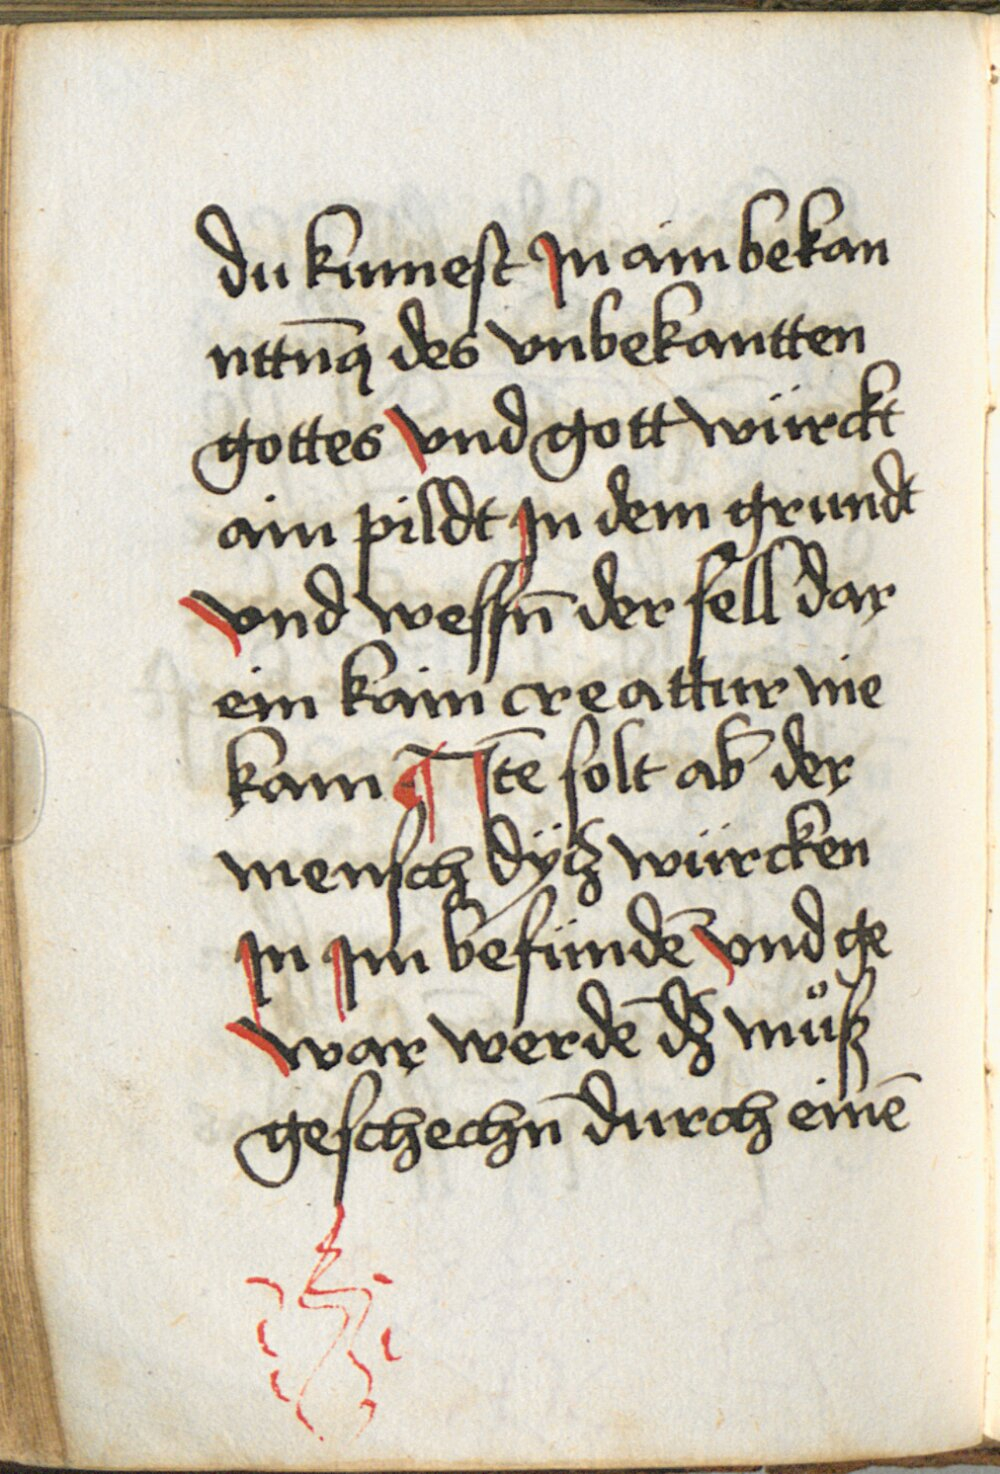 du kumest Jn aim bekan
nttnꝰ des vnbekantten
gottes vnd gott würckt
ain pildt Jn dem grundt
vnd wessn̄ der sell dar
ein kain creattur nie
kam Jtē solt ab̄ der
mensch dÿß würcken
Jn Jm befündē vnd ge
war werdē dß můß
geschechn̄ durch einē